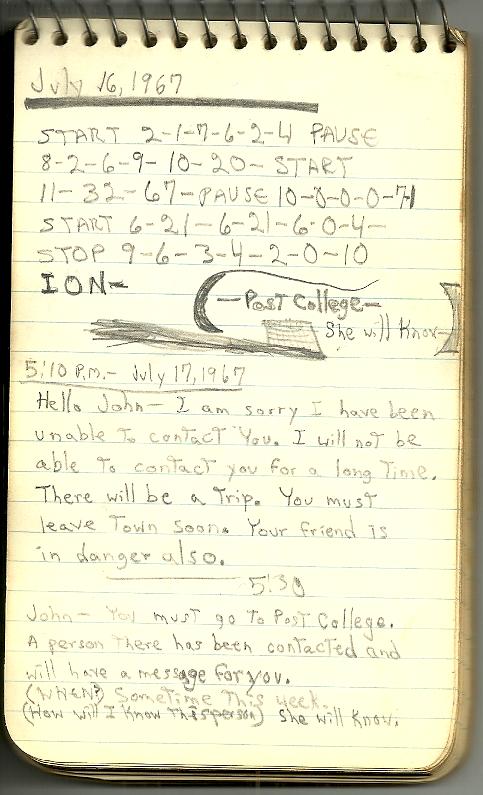 July 16, 1967
START 2-1-7-6-2-4 PAUSE
8-2-6-9-10-20- START
11-32-67-PAUSE 10-0-0-0-74
START 6-21-6-21-6-0-4-
STOP 9-6-3-4-2-0-10
ION-
-Post College-
She will Know-
5:10 P.M.- July 17, 1967
Hello John- I am sorry I have been
unable to contact You. I will not be
able to contact you for a long Time.
There will be a Trip. You must
leave Town soon. Your friend is
in danger also.
5:30
John- You must go to Post College.
A person There has been contacted and
will have a message for you.
(WHEN?) Sometime This week.
(How will I Know This person) She will Know.